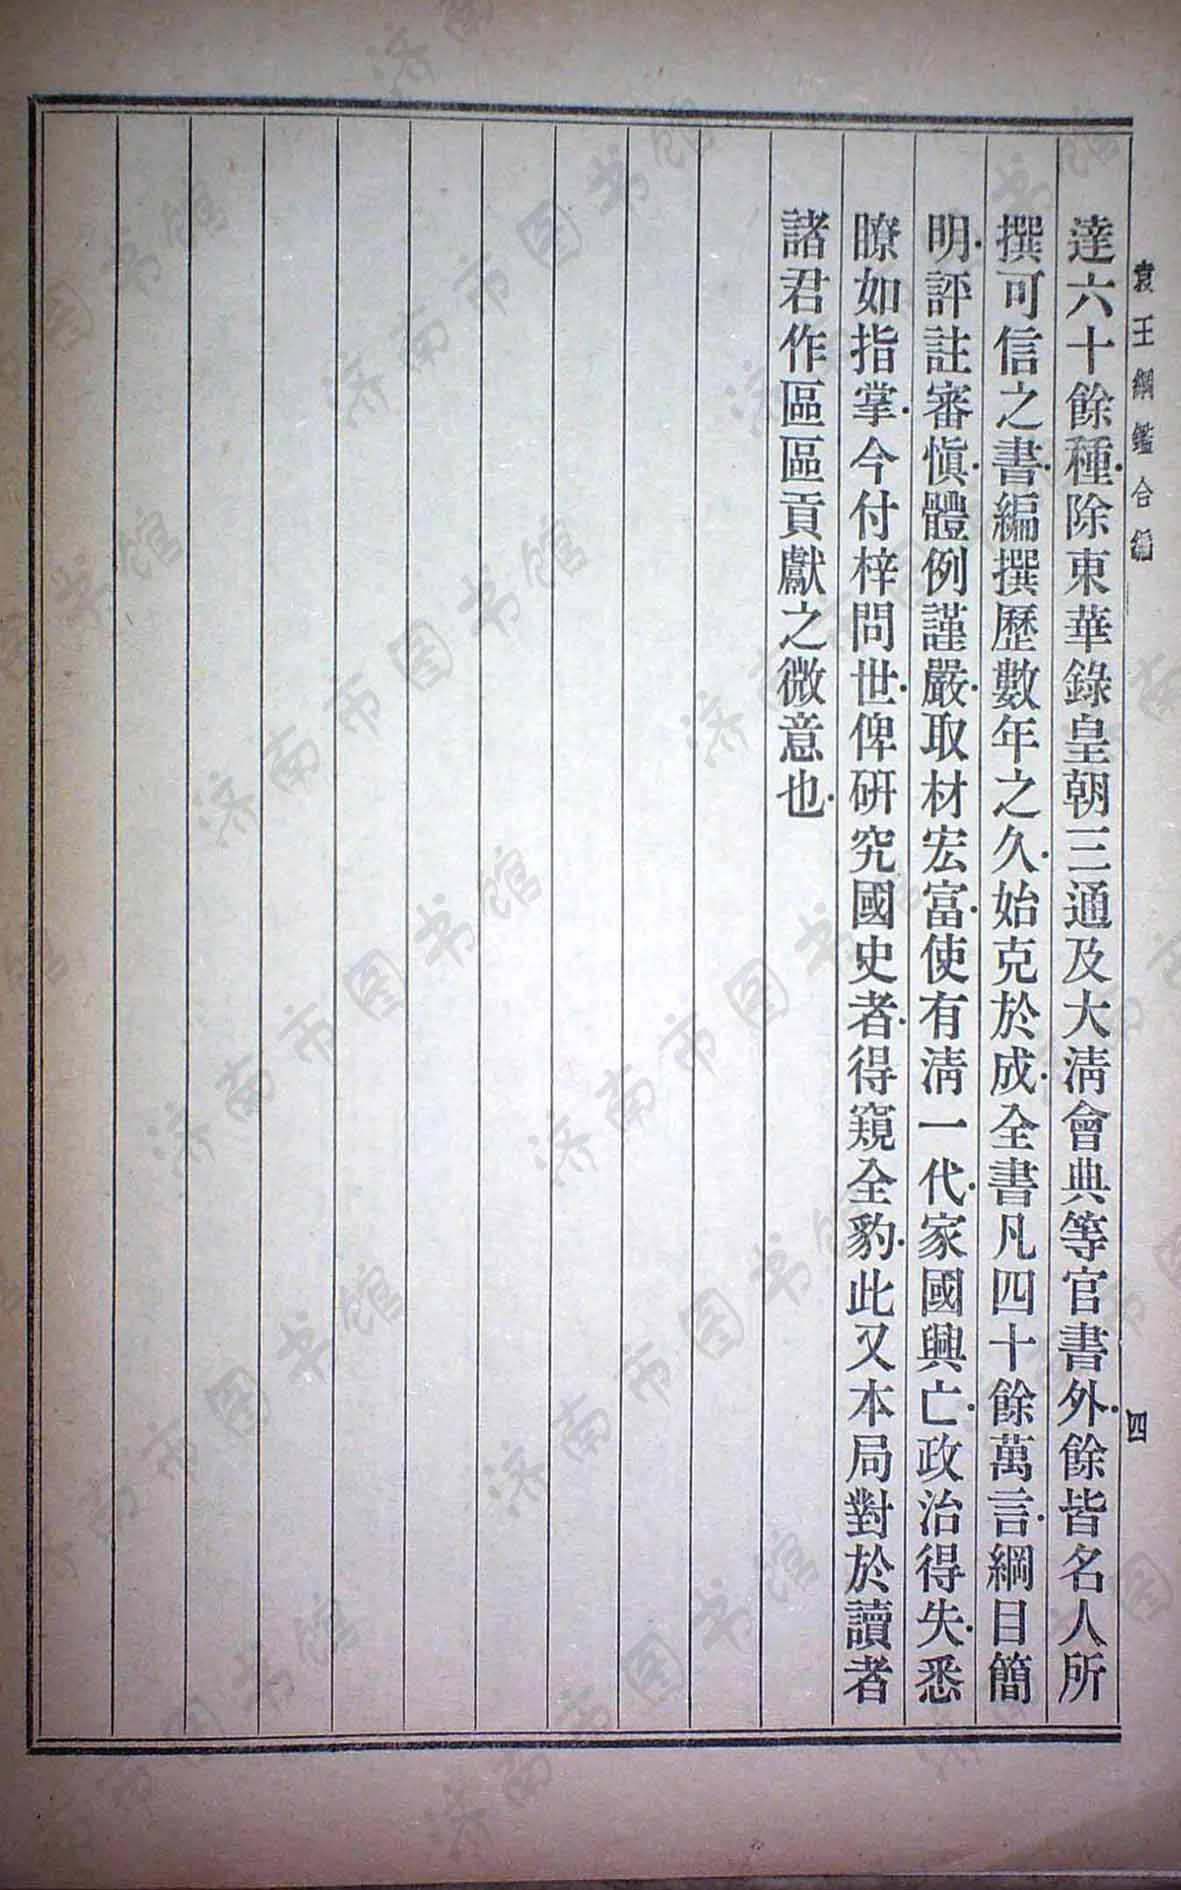 袁王綱鑑合編
四
達六十餘種．除東華錄皇朝三通及大淸會典等官書外．餘皆名人所
撰可信之書．編撰歷數年之久．始克於成．全書凡四十餘萬言．綱目簡
明．評註審愼．體例謹嚴．取材宏富．使有淸一代．家國興亡．政治得失．悉
瞭如指掌．今付梓問世．俾硏究國史者．得窺全豹．此又本局對於讀者
諸君作區區貢獻之微意也．
济南市图书馆